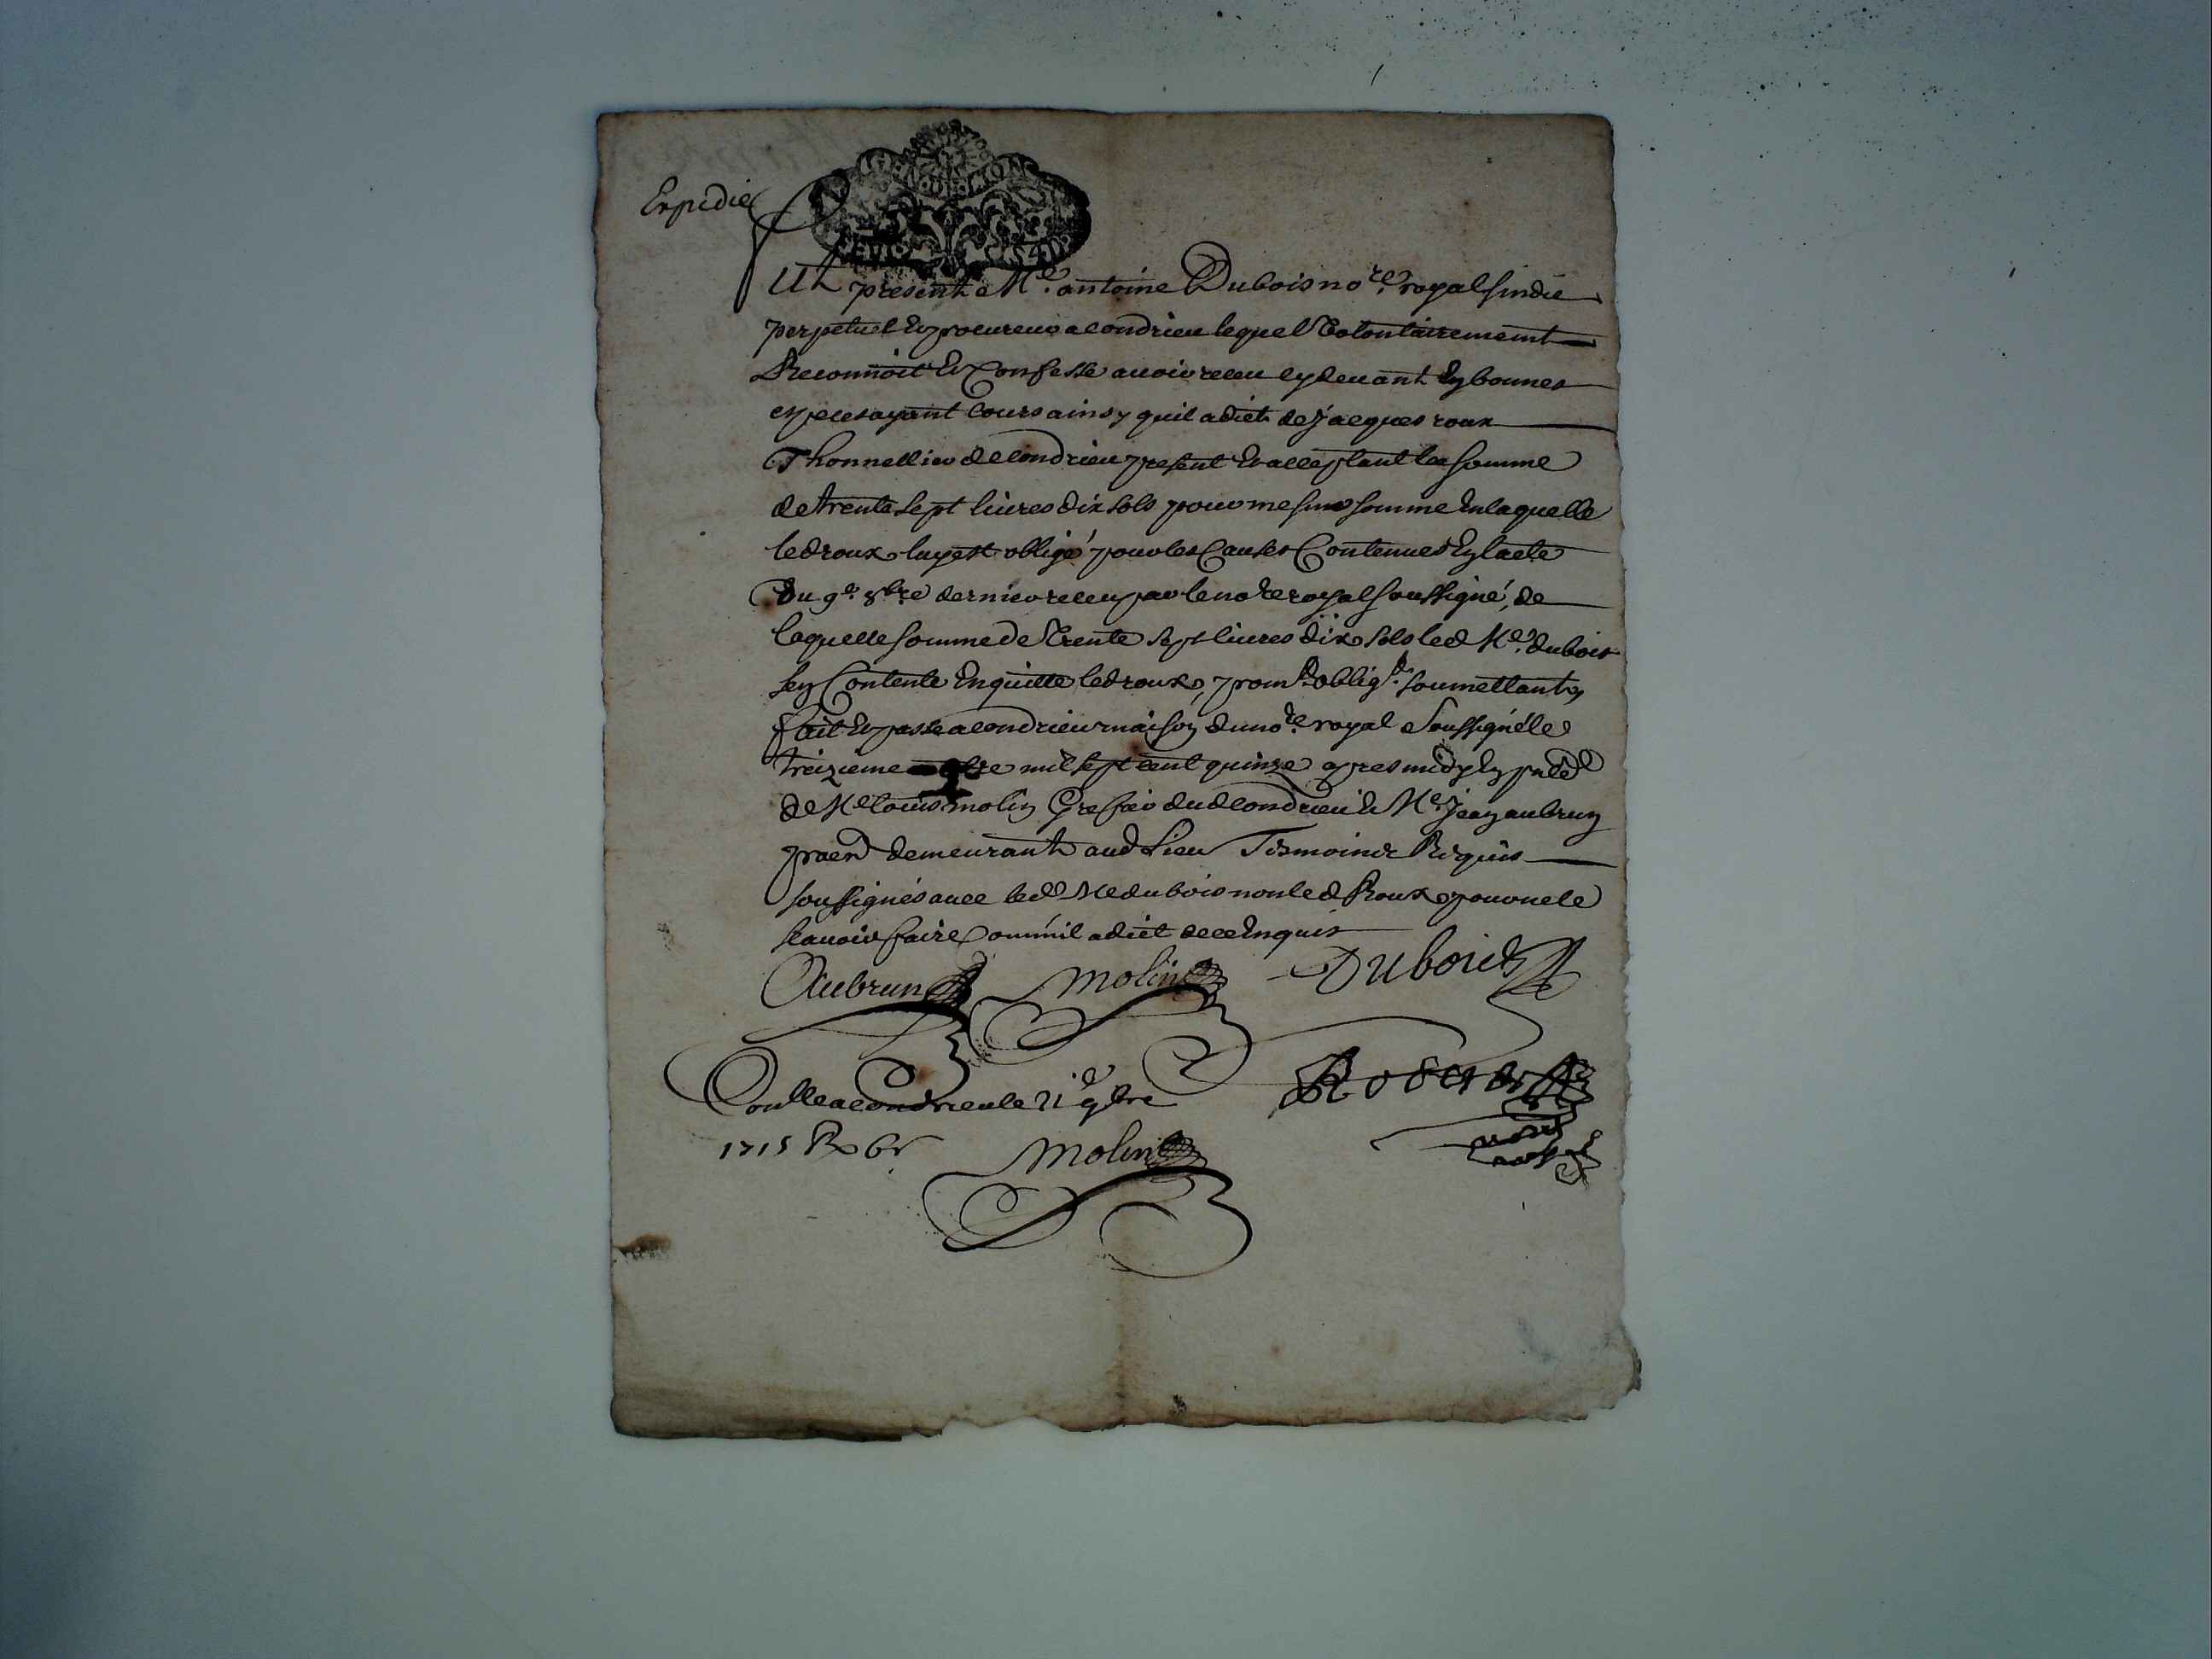 Expedié
Fut present Me. antoine Dubois nore. royal sindic
perpetuel Et procureur a condrieu lequel Volontairement
Reconnoit Et Confesse auoir receu cydeuant En bonnes
especes ayant cours ainsy quil a dict de Jacques roux
Thonnellier de condrieu present Et acceptant la somme
de trente sept liures dix sols pour mesme somme En laquelle
led roux luy est obligé pour les Causes Contenues En lacte
du 9e. 8bre dernier receu par le nore royal soussigné, de
laquelle somme de Trente sept liures dix sols led Me. dubois
sen Contente En quitte led roux, prom. oblig. soumettant,
fait Et passé a condrieu maison du nore. royal Soussigné le
treizieme mil sept cent quinze apres midy En
de Me louis molin Greffier dud condrieu & Me. Jean aubrun
demeurant aud Lieu Tesmoins Requis
soussignés auec led Me dubois non led Roux pour ne le
scauoir faire comm'il a dict de ce Enquis
Aubrun Molin Dubois
Conlle a condrieu le 21e 9bre
1715 R 6s
Molin